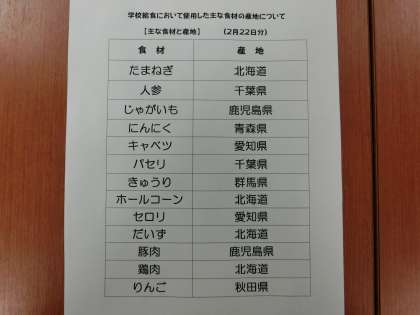 学校給食において使用した主な食材の産地について
【主な食材と産地】 (2月22日分)
食 材 産 地
たまねぎ 北海道
人参 千葉県
じゃがいも 鹿児島県
にんにく 青森県
キャベツ 愛知県
パセリ 千葉県
きゅうり 群馬県
ホールコーン 北海道
セロリ 愛知県
だいず 北海道
豚肉 鹿児島県
鶏肉 北海道
りんご 秋田県